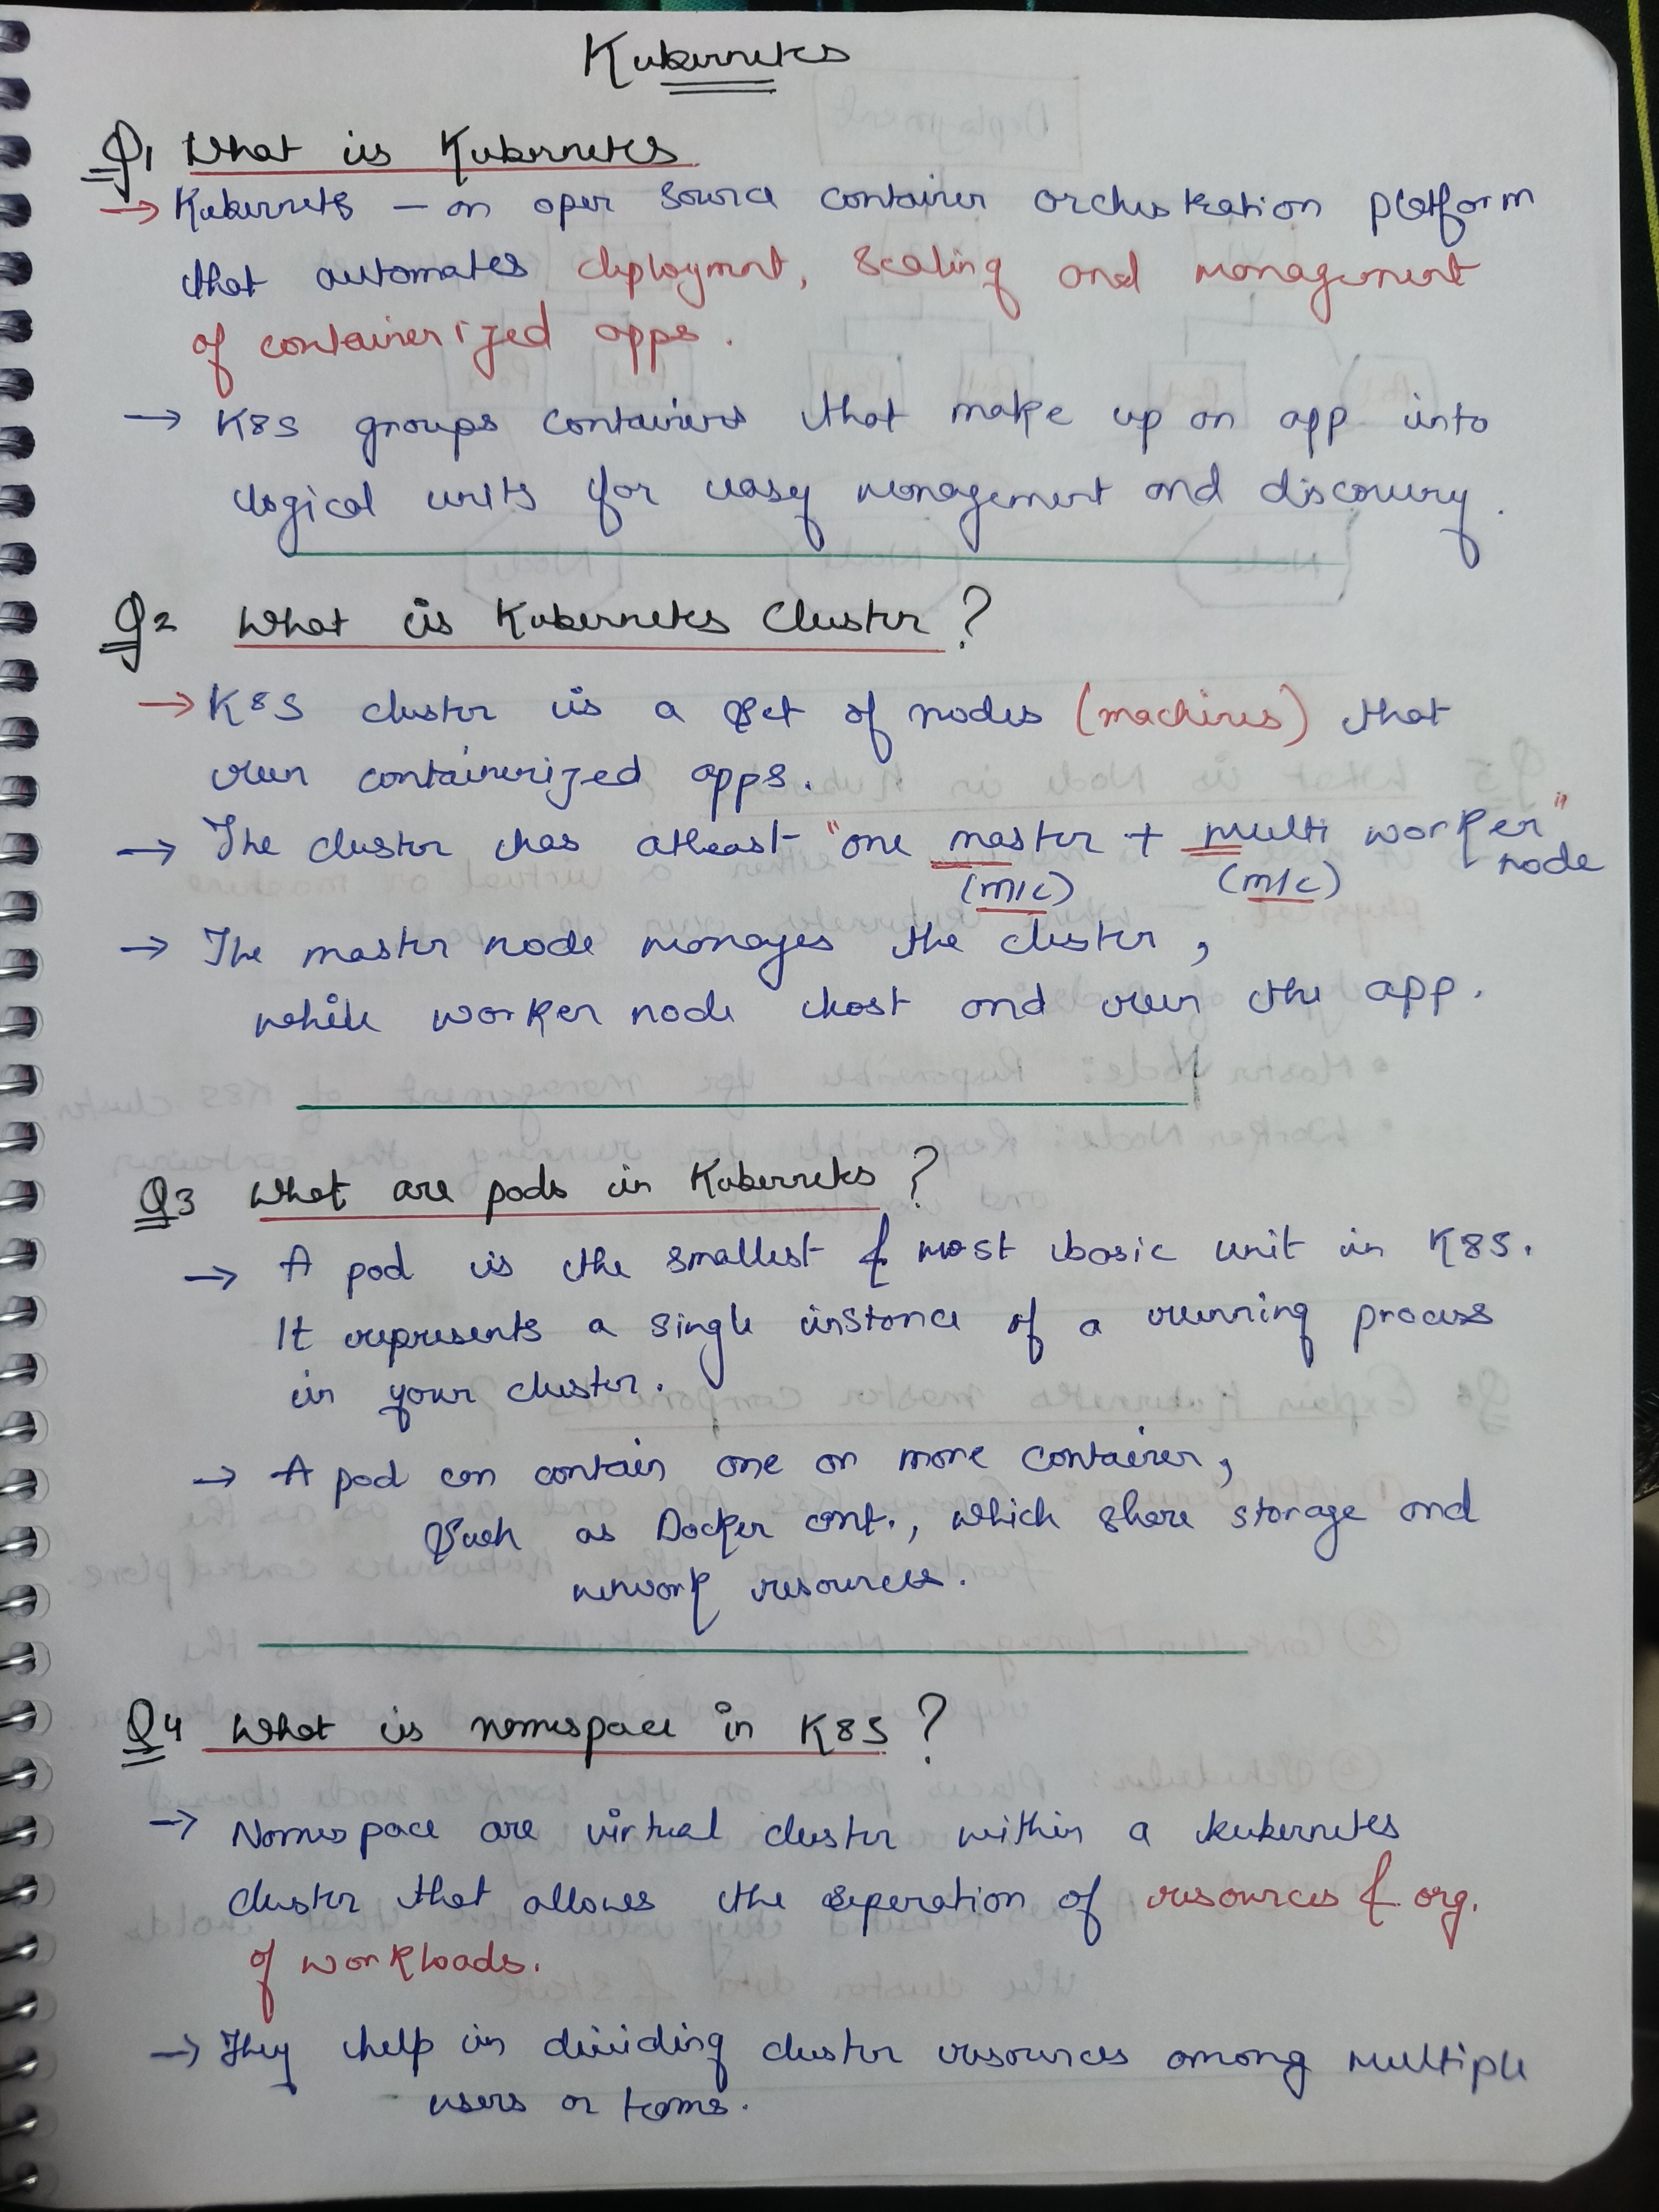 Kubernetes
Q1 What is Kubernetes
→ Kubernets – an open source container orchestration platform
that automates deployment, scaling and management
of containerized apps.
→ K8S groups containers that make up an app into
logical units for easy management and discovery.
Q2 What is Kubernetes Cluster?
→ K8S cluster is a set of nodes (machines) that
run containerized apps.
→ The cluster has atleast "one master + multi worker"
node
(m/c) (m/c)
→ The master node manages the cluster,
while worker node host and run the app.
Q3 What are pods in Kubernetes?
→ A pod is the smallest & most basic unit in K8S.
It represents a single instance of a running process
in your cluster.
→ A pod can contain one or more container,
Such as Docker cont., which share storage and
network resources.
Q4 What is namespace in K8S?
→ Namespace are virtual cluster within a kubernetes
cluster that allows the seperation of resources & org.
of workloads.
→ They help in dividing cluster resources among multiple
users or teams.